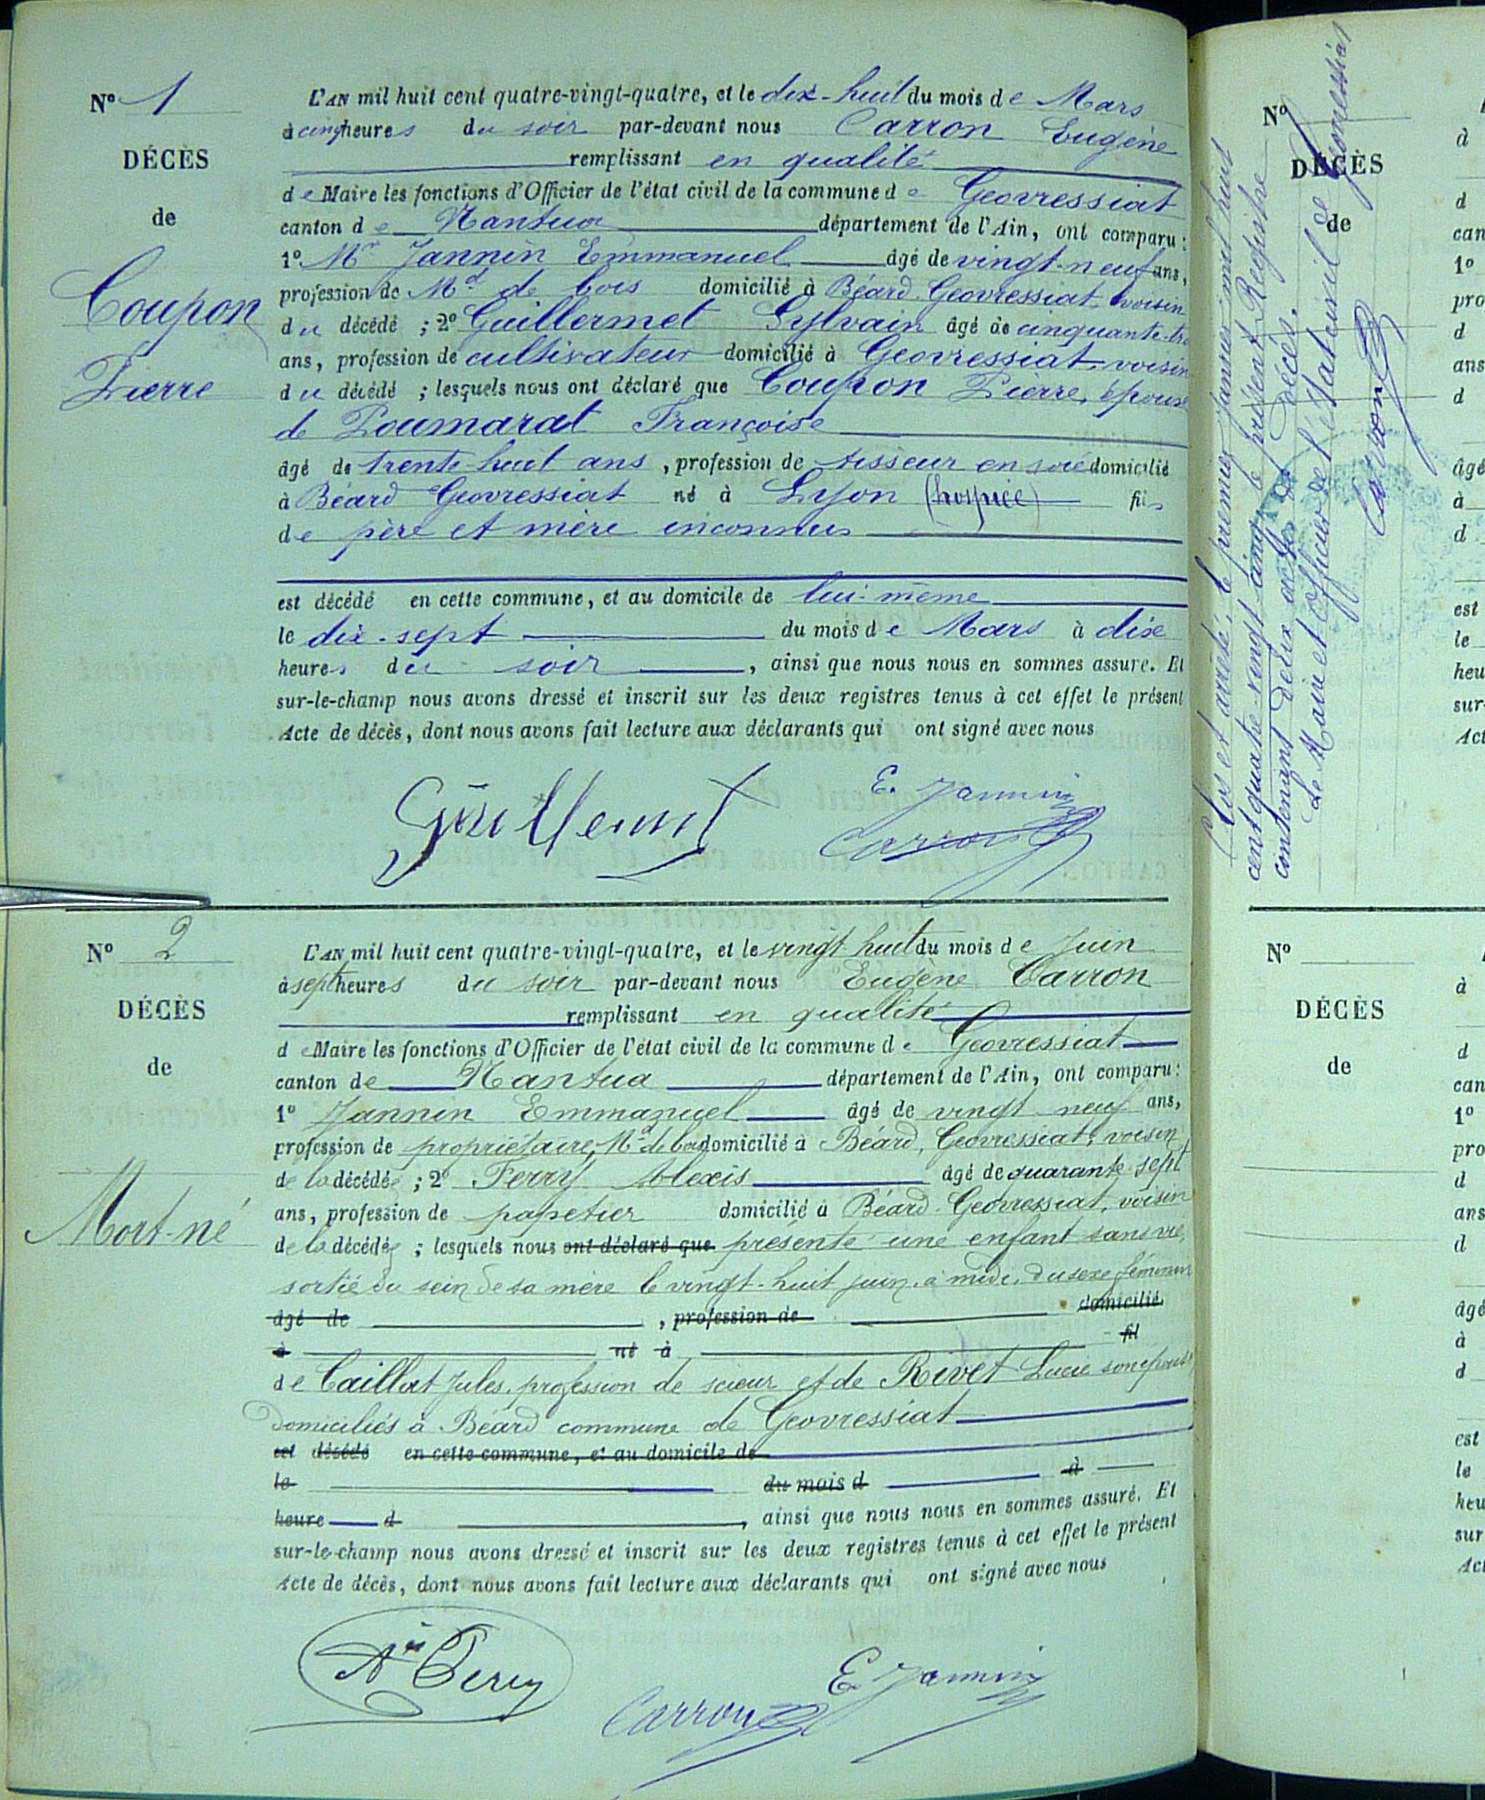 N° 1
DÉCÈS
de
Coupon
Pierre
L'AN mil huit cent quatre-vingt-quatre, et le dix-huit du mois de Mars
à cinq heures du soir par-devant nous Carron Eugène
remplissant en qualité
de Maire les fonctions d'Officier de l'état civil de la commune de Géovressiat
canton de Nantua département de l'Ain, ont comparu :
1° Mr Jannin Emmanuel âgé de vingt-neuf ans,
profession de Md de bois domicilié à Béard Géovressiat voisin
du décédé ; 2° Guillermet Sylvain âgé de cinquante-tr
ans, profession de cultivateur domicilié à Géovressiat voisin
du décédé ; lesquels nous ont déclaré que Coupon Pierre, époux
de Poumarat Françoise
âgé de trente-huit ans, profession de tisseur en soie domicilié
à Béard Géovressiat né à Lyon (hospice) fils
de père et mère inconnus
est décédé en cette commune, et au domicile de lui-même
le dix-sept du mois de Mars à dix
heures du soir, ainsi que nous nous en sommes assuré. Et
sur-le-champ nous avons dressé et inscrit sur les deux registres tenus à cet effet le présent
Acte de décès, dont nous avons fait lecture aux déclarants qui ont signé avec nous
Guillermet
E. Jannin
Carron
N° 2
DÉCÈS
de
Mort-né
L'AN mil huit cent quatre-vingt-quatre, et le vingt huit du mois de Juin
à sept heures du soir par-devant nous Eugène Carron
remplissant en qualité
de Maire les fonctions d'Officier de l'état civil de la commune de Géovressiat
canton de Nantua département de l'Ain, ont comparu :
1° Jannin Emmanuel âgé de vingt neuf ans,
profession de propriétaire, Md de bois domicilié à Béard, Géovressiat, voisin
de la décédée ; 2° Perry Alexis âgé de quarante-sept
ans, profession de papetier domicilié à Béard-Géovressiat, voisin
de la décédée ; lesquels nous ont déclaré que présenté une enfant sans vie,
sortie du sein de sa mère le vingt-huit juin, à midi, du sexe féminin
âgé de , profession de domicilié
à né à fil
de Caillat Jules, profession de scieur et de Rivet Lucie son épouse
domiciliés à Béard commune de Géovressiat
est décédé en cette commune, et au domicile de
le du mois d à
heure d , ainsi que nous nous en sommes assuré. Et
sur-le-champ nous avons dressé et inscrit sur les deux registres tenus à cet effet le présent
Acte de décès, dont nous avons fait lecture aux déclarants qui ont signé avec nous
Perry
E. Jannin
Carron
N°
DÉCÈS
de
Clos et arrêté, le premier Janvier mil huit
cent quatre-vingt cinq le présent Registre
contenant deux actes de décès.
Le Maire et Officier de l'état civil de Géovressiat
Carron
à
d
can
1°
pro
d
ans
d
âgé
à
d
est
le
heu
sur-
Act
N°
DÉCÈS
de
à
d
can
1°
pro
d
ans
d
âgé
à
d
est
le
heu
sur
Act